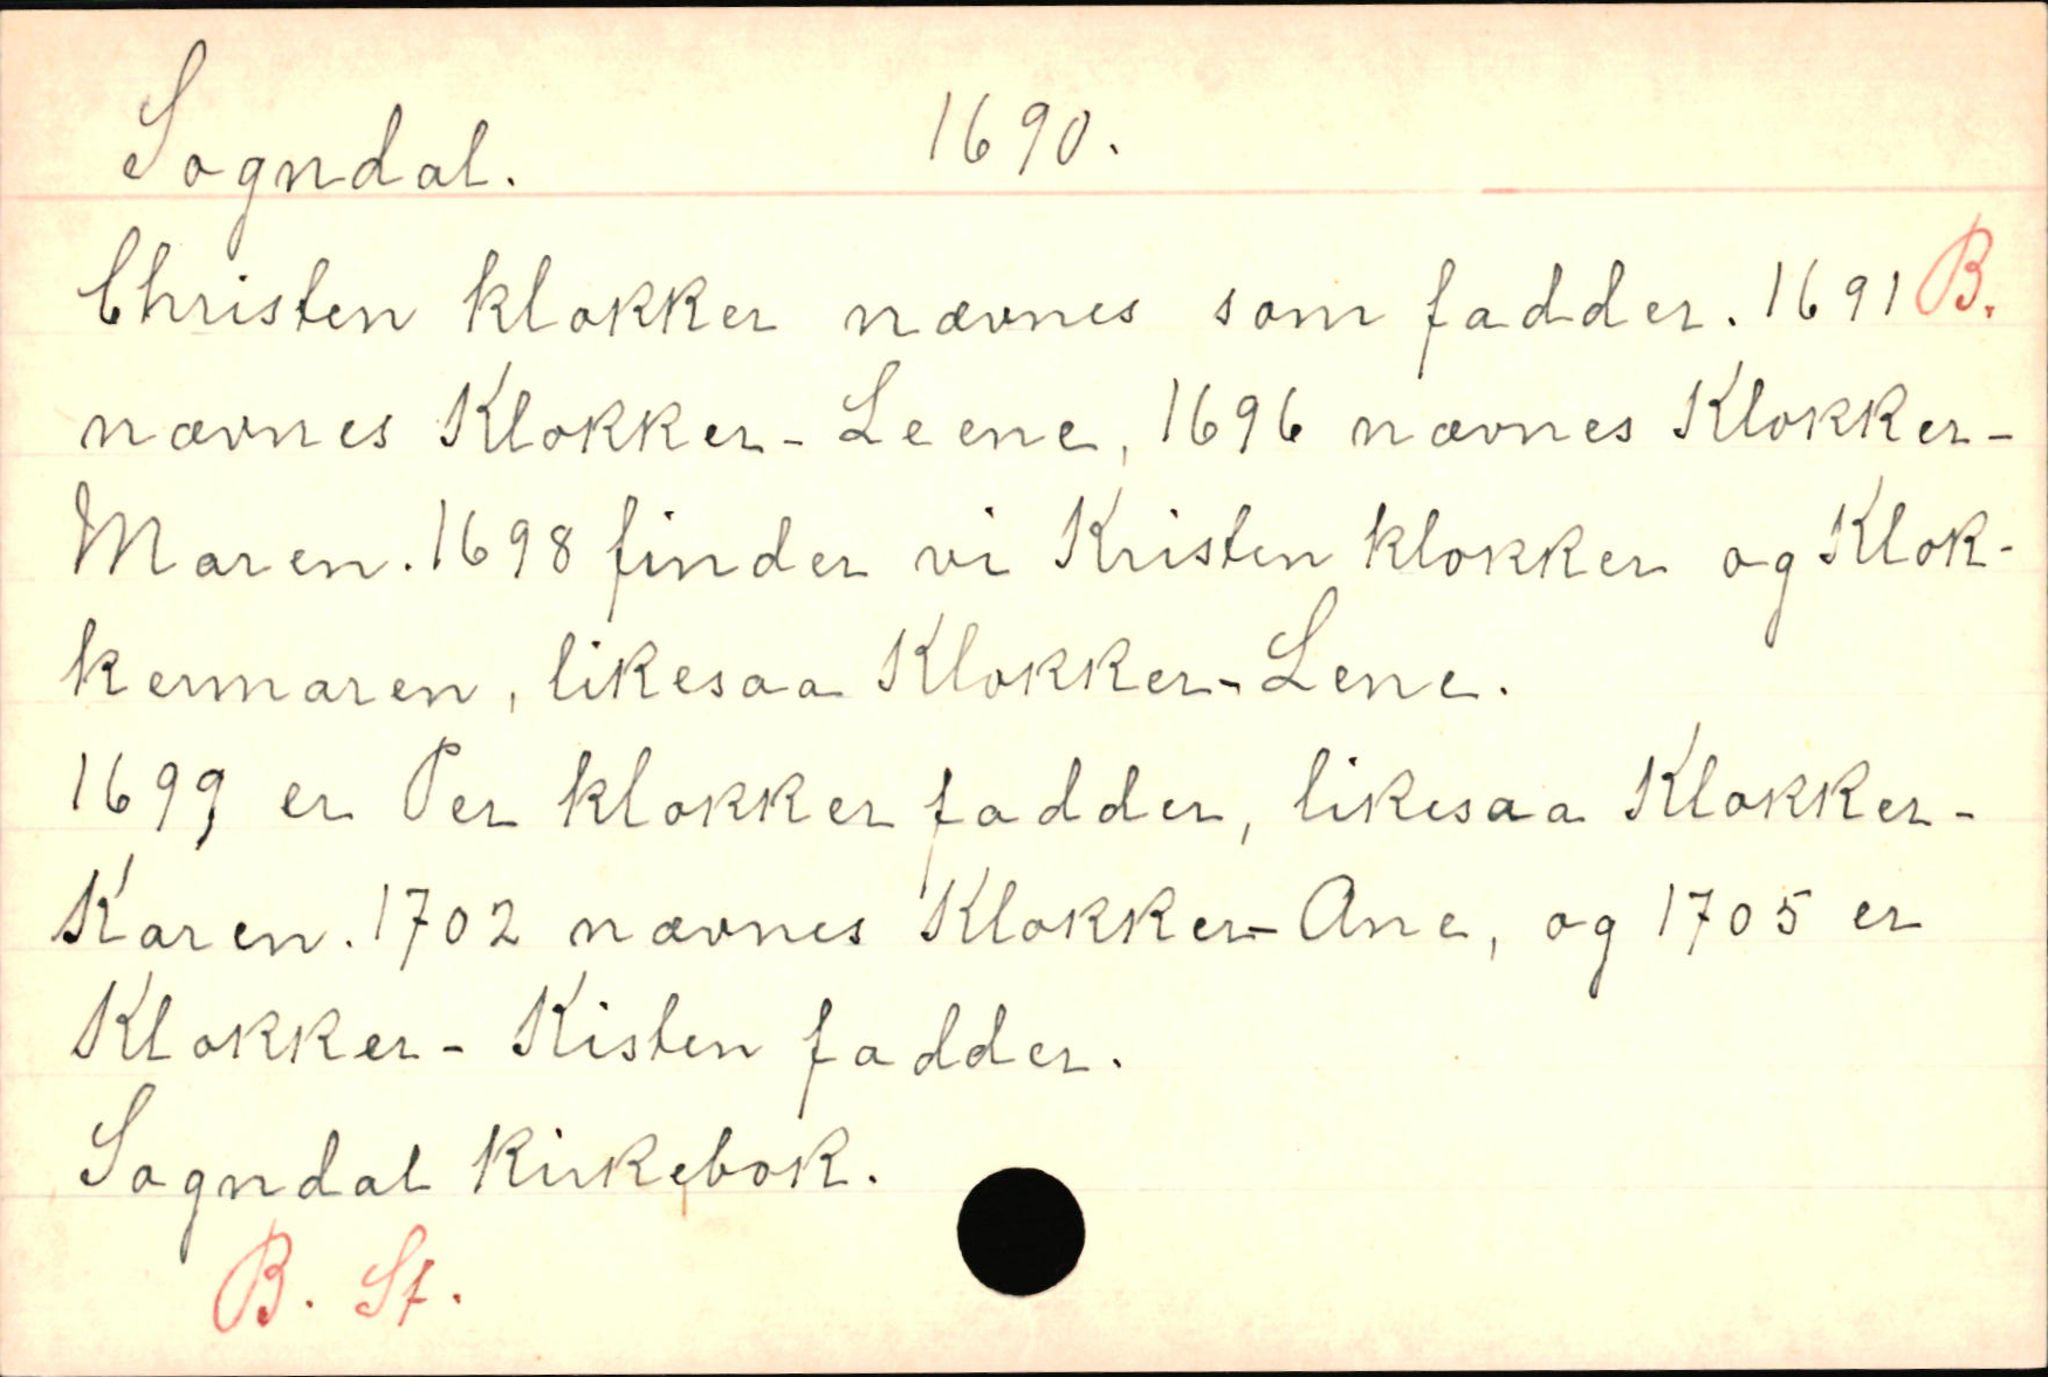 Sogndal. 1690.
Christen klokker nævnes som fadder. 1691 B.
nævnes Klokker-Leene, 1696 nævnes Klokker-
Maren. 1698 finder vi Kristen klokker og Klok-
kermaren, likesaa Klokker-Lene.
1699, er Per klokker fadder, likesaa Klokker-
Karen. 1702 nævnes Klokker-Ane, og 1705 er
Klokker-Kisten fadder.
Sogndal kirkebok.
B. St.